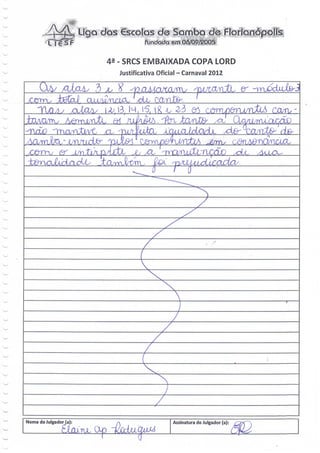 Liga das Escolas de Samba de Florianópolis
fundada em 06/09/2005
LIESF
4ª - SRCS EMBAIXADA COPA LORD
Justificativa Oficial – Carnaval 2012
As alas 3 e 8 passaram perante o módulo 3
com total ausência de canto.
Nas alas 12, 13, 14, 15, 18 e 23 os componentes can-
taram somente os refrões. Portanto a Agremiação
não manteve a perfeita igualdade do canto do
samba-enredo pelos componentes em consonância
com o intérprete e a manutenção de sua
tonalidade também foi prejudicada.
Nome do Julgador (a): Elaine Ap. Rodrigues
Assinatura do Julgador (a):